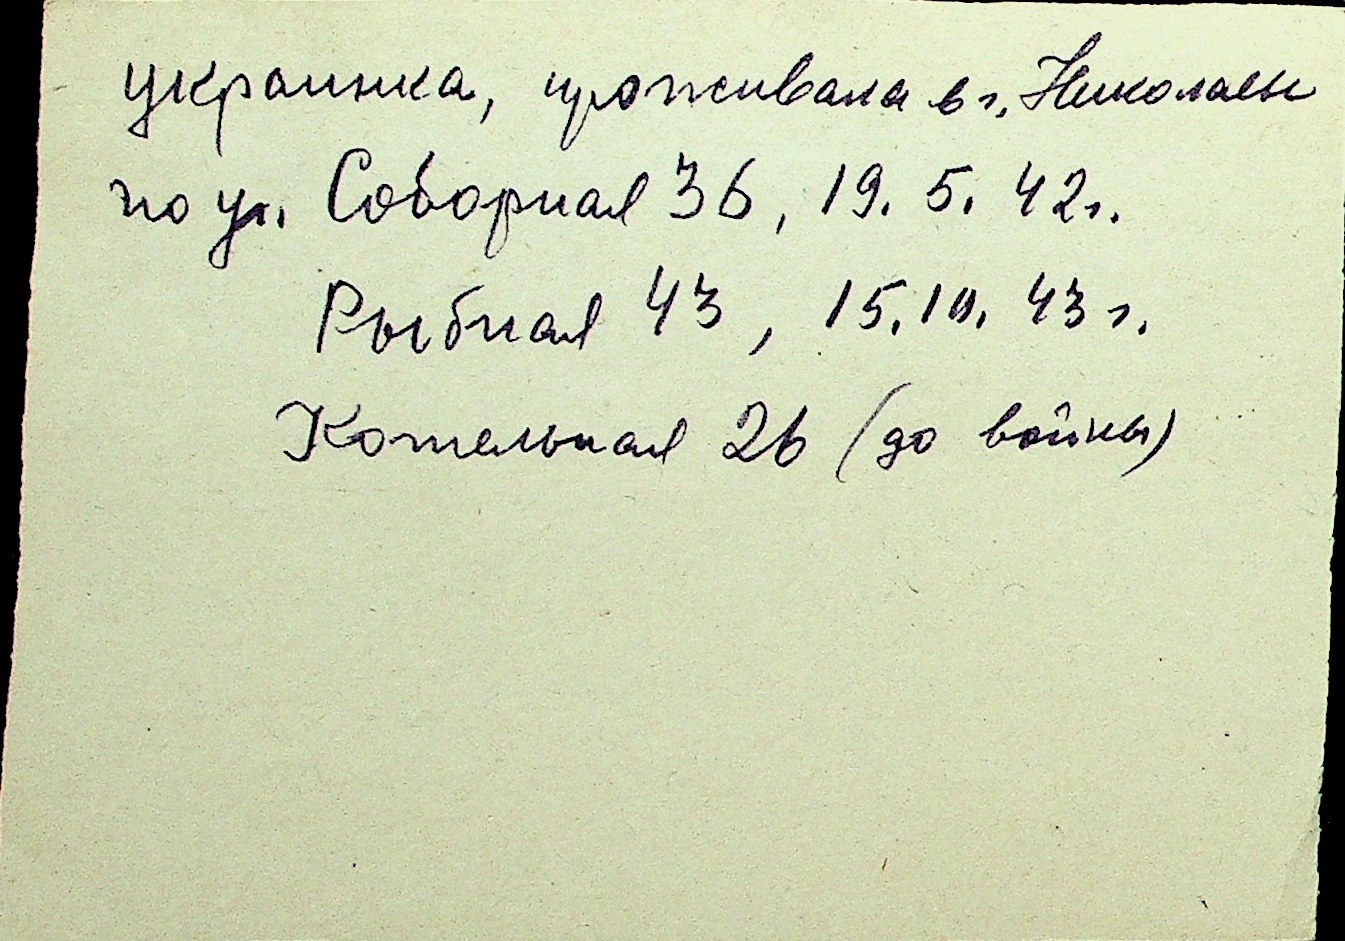 украинка, проживала в г. Николаеве
по ул. Соборная 36, 19. 5. 42г.
Рыбная 43, 15.10. 43г.
Котельная 26 (до войны)